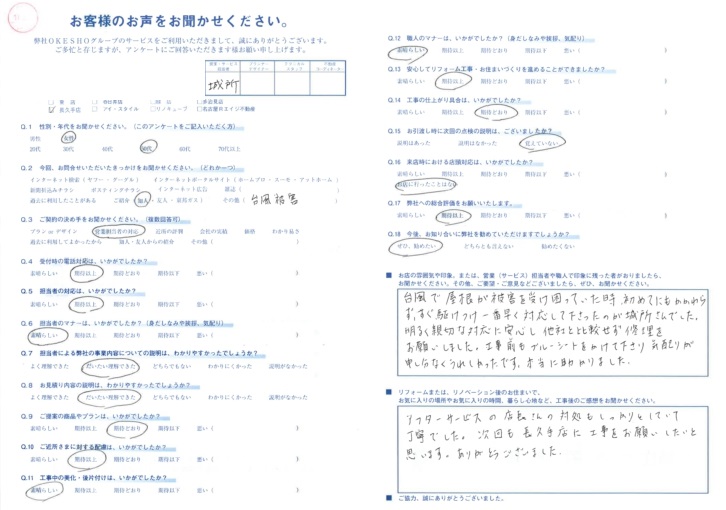 お客様のお声をお聞かせください。
弊社OKESHOグループのサービスをご利用いただきまして、誠にありがとうございます。
ご多忙と存じますが、アンケートにご回答いただきます様お願い申し上げます。
城所
長久手店
リノキューブ
名古屋
Q.1 性別・年代をお聞かせください。（このアンケートをご記入いただく方）
男性 女性
20代 30代 40代 50代 60代 70代以上
Q.2 今回、お問合せいただいたきっかけをお聞かせください。（どれか一つ）
インターネット検索（ヤフー・グーグル） インターネットポータルサイト（ホームプロ・スーモ・アットホーム）
新聞折込みチラシ ポスティングチラシ インターネット広告 雑誌（ ）
過去に利用したことがある ご紹介（知人・友人・東邦ガス） その他（ 台風被害 ）
Q.3 ご契約の決め手をお聞かせください。（複数回答可）
プラン or デザイン 営業担当者の対応 近所の評判 会社の実績 価格 わかり易さ
過去に利用してよかったから 知人・友人からの紹介 その他（ ）
Q.4 受付時の電話対応は、いかがでしたか？
素晴らしい 期待以上 期待どおり 期待以下 悪い（ ）
Q.5 担当者の対応は、いかがでしたか？
素晴らしい 期待以上 期待どおり 期待以下 悪い（ ）
Q.6 担当者のマナーは、いかがでしたか？（身だしなみや挨拶、気配り）
素晴らしい 期待以上 期待どおり 期待以下 悪い（ ）
Q.7 担当者による弊社の事業内容についての説明は、わかりやすかったでしょうか？
よく理解できた だいたい理解できた どちらでもない わかりにくかった 説明がなかった
Q.8 お見積り内容の説明は、わかりやすかったでしょうか？
よく理解できた だいたい理解できた どちらでもない わかりにくかった 説明がなかった
Q.9 ご提案の商品やプランは、いかがでしたか？
素晴らしい 期待以上 期待どおり 期待以下 悪い（ ）
Q.10 ご近所さまに対する配慮は、いかがでしたか？
素晴らしい 期待以上 期待どおり 期待以下 悪い（ ）
Q.11 工事中の美化・後片付けは、いかがでしたか？
素晴らしい 期待以上 期待どおり 期待以下 悪い（ ）
Q.12 職人のマナーは、いかがでしたか？（身だしなみや挨拶、気配り）
素晴らしい 期待以上 期待どおり 期待以下 悪い（ ）
Q.13 安心してリフォーム工事・お住まいづくりを進めることができましたか？
素晴らしい 期待以上 期待どおり 期待以下 悪い（ ）
Q.14 工事の仕上がり具合は、いかがでしたか？
素晴らしい 期待以上 期待どおり 期待以下 悪い（ ）
Q.15 お引渡し時に次回の点検の説明は、ございましたか？
説明はあった 説明はなかった 覚えていない
Q.16 来店時における店頭対応は、いかがでしたか？
素晴らしい 期待以上 期待どおり 期待以下 悪い（ ）
お店に行ったことはない
Q.17 弊社への総合評価をお願いいたします。
素晴らしい 期待以上 期待どおり 期待以下 悪い（ ）
Q.18 今後、お知り合いに弊社を勧めていただけますでしょうか？
ぜひ、勧めたい どちらとも言えない 勧めたくない
■ お店の雰囲気や印象、または、営業（サービス）担当者や職人で印象に残った者がおりましたら、
お聞かせください。その他、ご要望・ご意見などございましたら、ぜひ、お聞かせください。
台風で屋根が被害を受け困っていた時、初めてにもかかわら
ず、すぐ駆けつけ一番早く対応して下さったのが城所さんでした。
明るく親切な対応に安心し他社と比較せず修理を
お願いしました。工事前もブルーシートをかけて下さりお配りが
申し分なくうれしかったです。本当に助かりました。
■ リフォームまたは、リノベーション後のお住まいで、
お気に入りの場所やお気に入りの時間、暮らし心地など、工事後のご感想をお聞かせください。
アフターサービスの店長さんの対処もしっかりとしていて
丁寧でした。次回も長久手店に工事をお願いしたいと
思います。ありがとうございました。
■ ご協力、誠にありがとうございました。